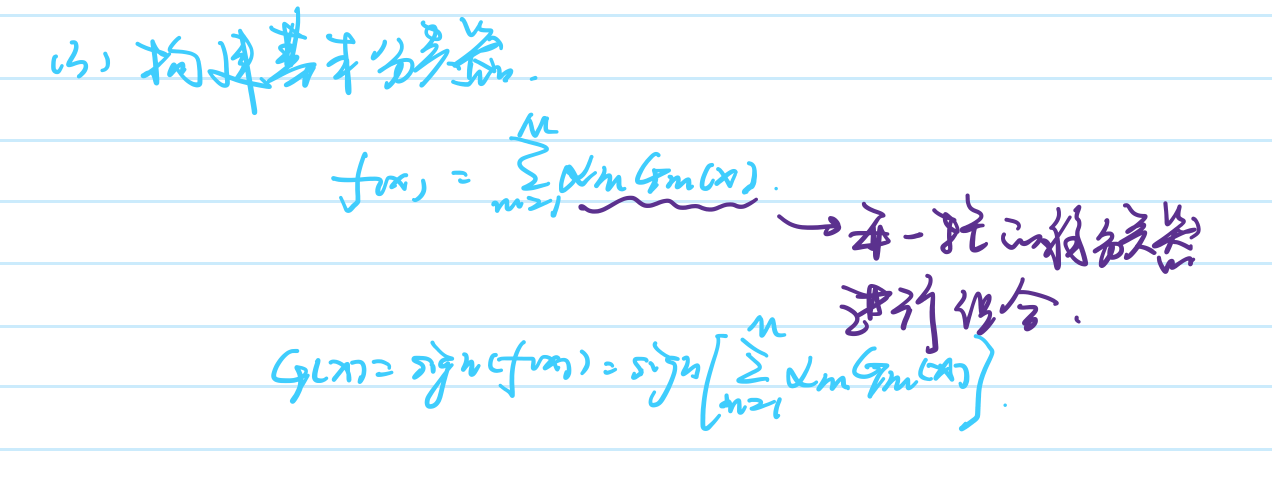 (3) 构建基本分类器.
f(x) = \sum_{m=1}^{M} \alpha_m G_m(x).
→ 每一轮的弱分类器
进行组合.
G(x) = sign(f(x)) = sign[\sum_{m=1}^{M} \alpha_m G_m(x)].